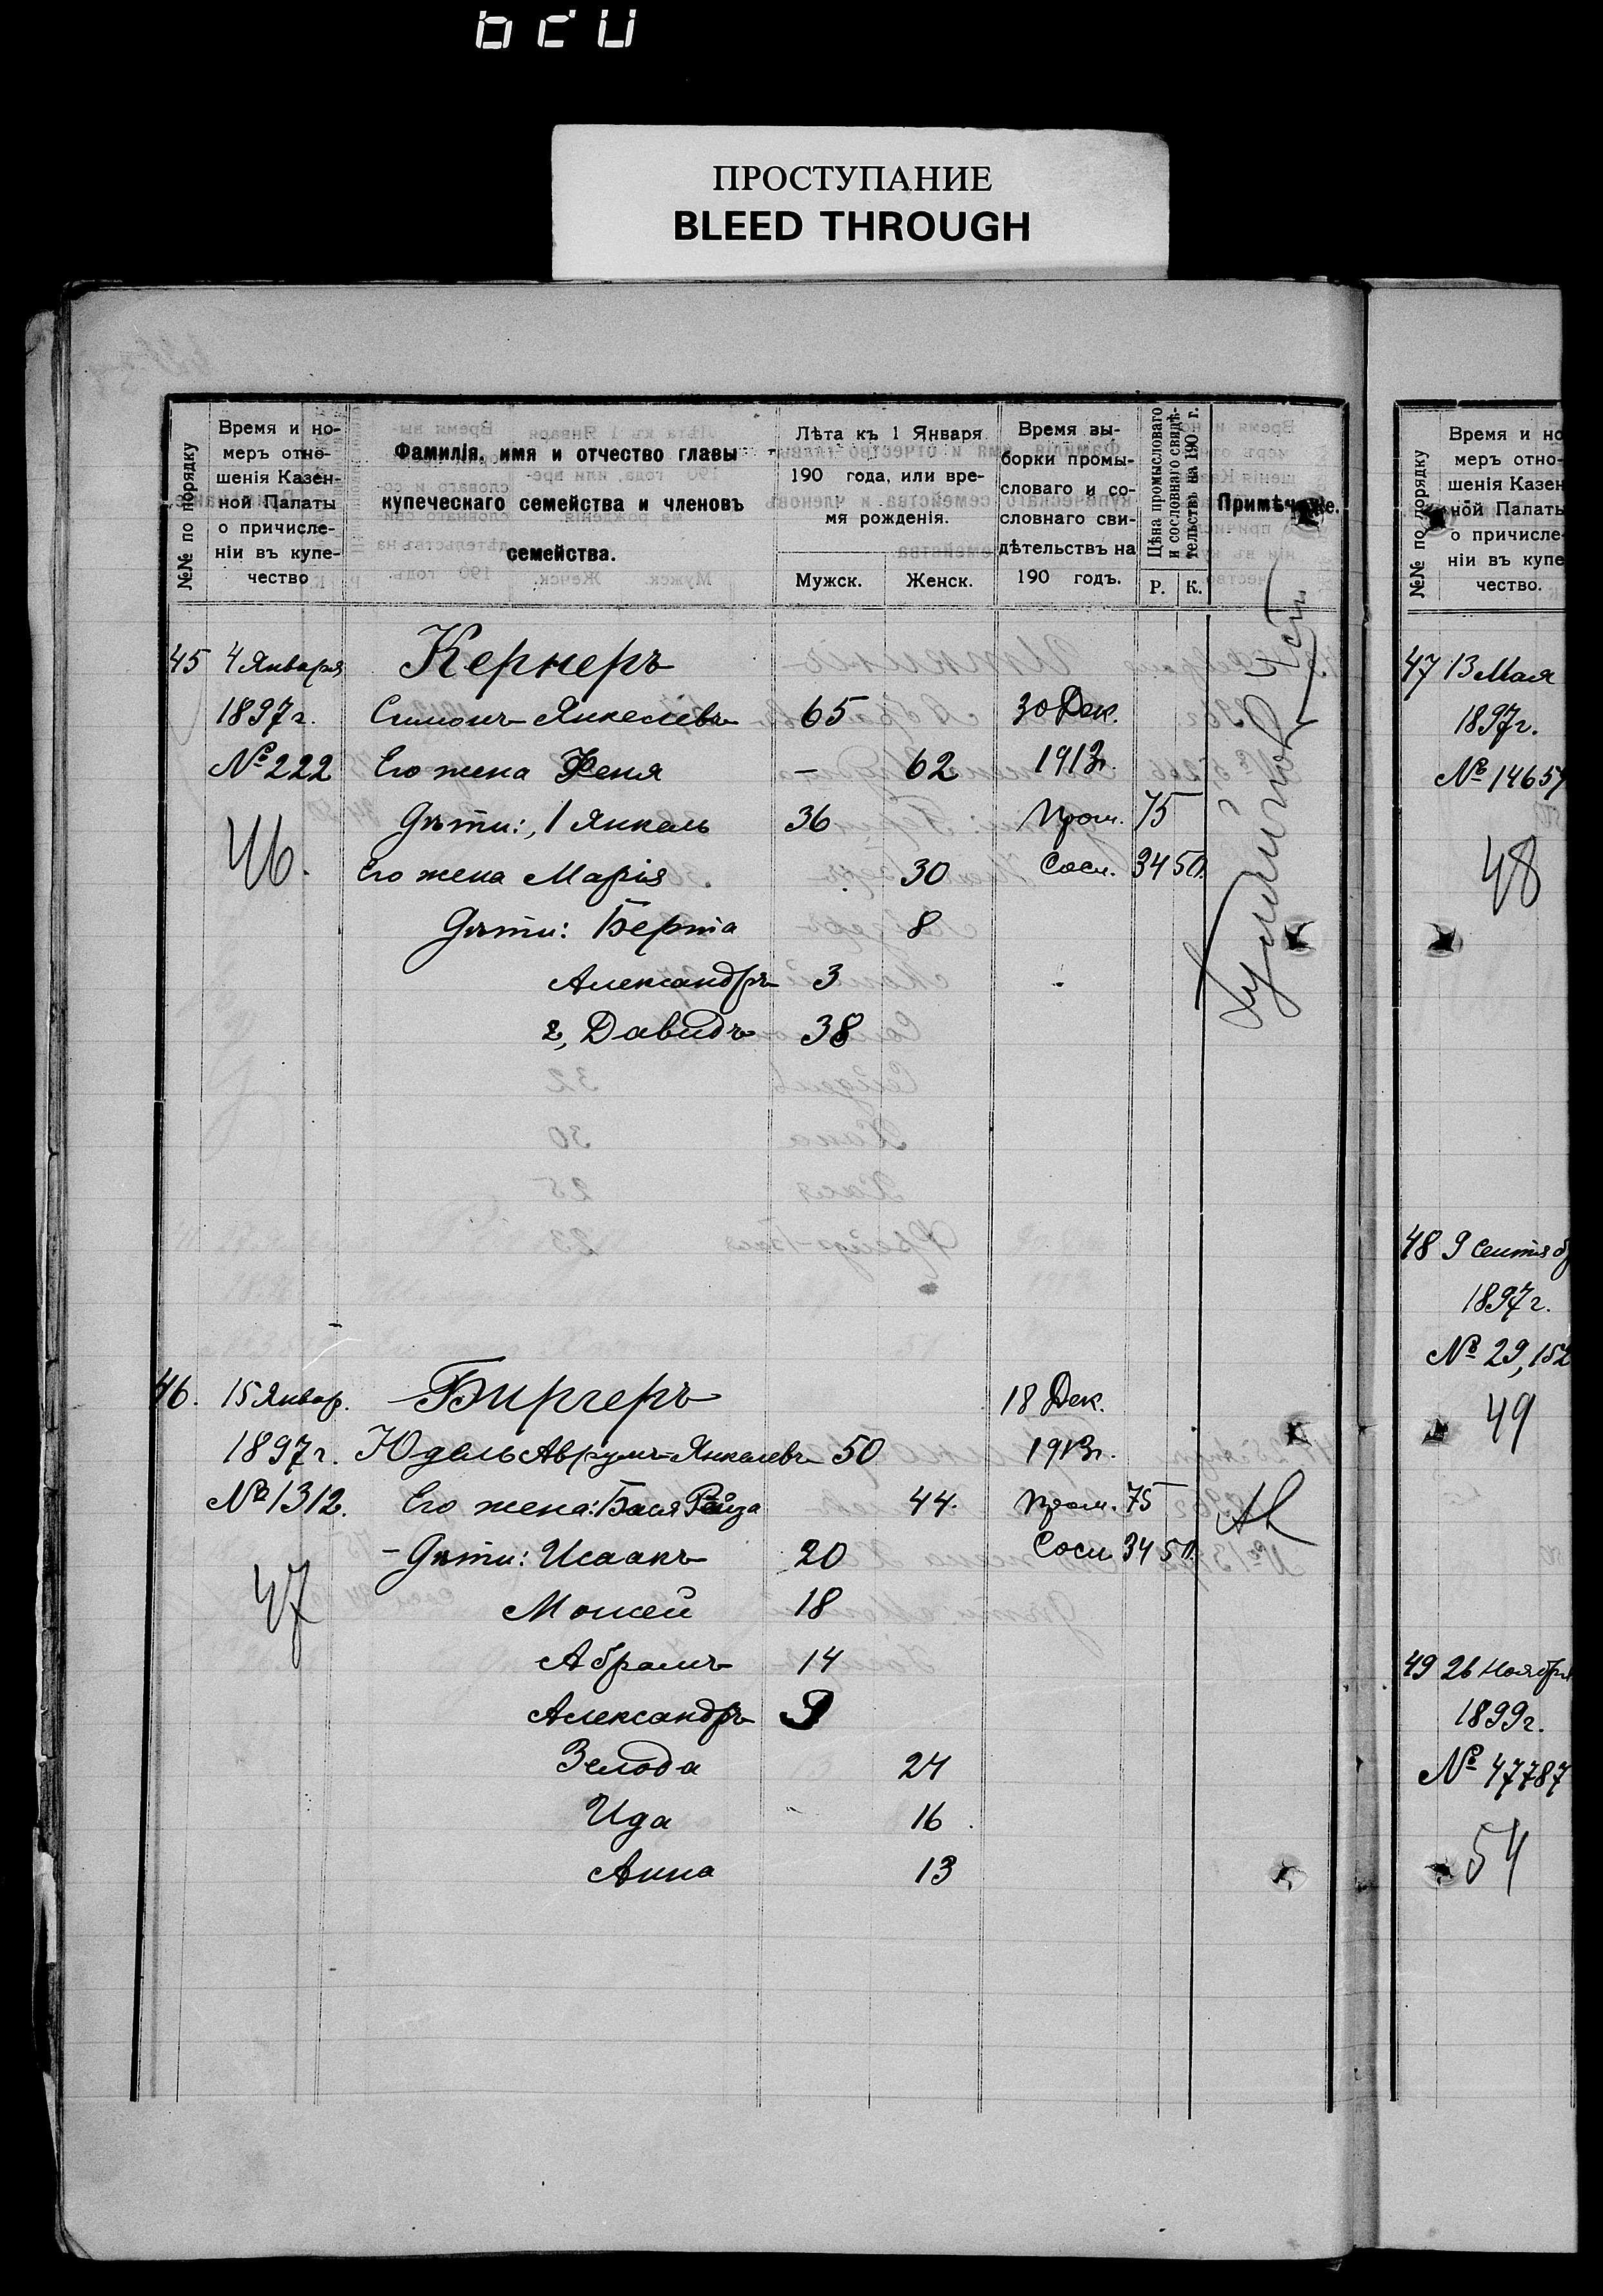 ПРОСТУПАНИЕ
BLEED THROUGH
№№ по порядку
Время и но-
меръ отно-
шенія Казен-
ной Палаты
о причисле-
ніи въ купе-
чество
Фамилія, имя и отчество главы
купеческаго семейства и членовъ
семейства.
Лѣта къ 1 Января
190 года, или вре-
мя рожденія.
Мужск. Женск.
Время вы-
борки промы-
словаго и со-
словнаго сви-
дѣтельствъ на
190 годъ.
Цѣна промысловаго
и сословнаго свидѣ-
тельствъ на 190 г.
Р. К.
Примѣчаніе.
45 4 Января Кернеръ
1897 г. Симонъ Янкелевъ 65 30 Дек.
№ 222 Его жена Феня — 62 1913 г.
Дѣти:, 1 Янкель 36 Пром. 75
46.
Его жена Марія 30 Сосл. 34 50.
Дѣти: Берта 8
Александръ 3
2, Давидъ 38
46. 15 Январ. Биргеръ 18 Дек.
1897 г. Юдель Аврумъ-Янкелевъ 50 1913 г.
№ 1312. Его жена: Бася Рейза 44. Пром. 75
Дѣти: Исаакъ 20 Сосл 34 50.
47
Моисей 18
Абрамъ 14
Александръ 9
Зелода 24
Ида 16
Анна 13
№№ по порядку
Время и но
меръ отно-
шенія Казен
ной Палаты
о причисле-
ніи въ купе
чество.
47 13 Мая
1897 г.
№ 14657
48
48 9 Сентяб
1897 г.
№ 29,152
49
49 26 Ноября
1899 г.
№ 47787
54